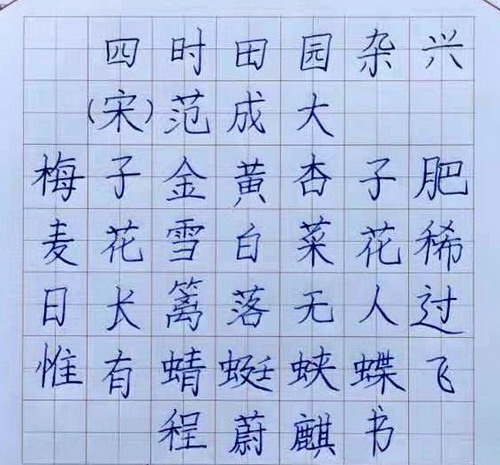 四时田园杂兴
(宋)范成大
梅子金黄杏子肥
麦花雪白菜花稀
日长篱落无人过
惟有蜻蜓蛱蝶飞
程蔚麒书